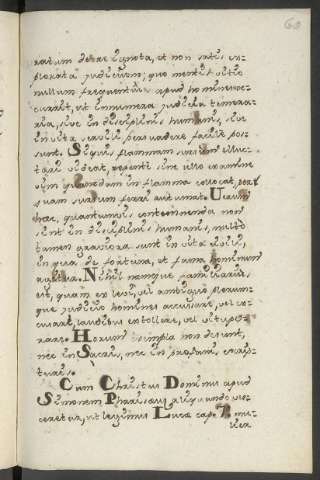 60
ratum de re ignota, et non satis ex-
plorata judicium; quo mentis vitio
nullum frequentius apud homines oc-
currit, ut innumera judicia temera-
ria, sive in disciplinis humanis, sive
in vita civili pervadere facile pos-
sunt. Si quis flammam sursum
videat, repente sine ullo examine
vim quandam in flamma collocat,
suam sursum ferri autumat.
haec, quantumvis contemnenda non
sint in disciplinis humanis, multo
tamen graviora sunt in vita civili,
in qua de fortuna, et fama hominum
agitur. Nihil namque familiarius
est, quam ex levi, vel ambiguo plerum-
que judicio homines accusare, vel ex-
cusare, laudibus extollere, vel vitupe-
rare. Horum exempla non desunt,
nec in Sacris, nec in profanis scrip-
turis.
Cum Christus Dominus apud
Simonem Pharisaeum aliquando ves-
ceretur, ut legimus Lucae cap. 7. mu-
lier